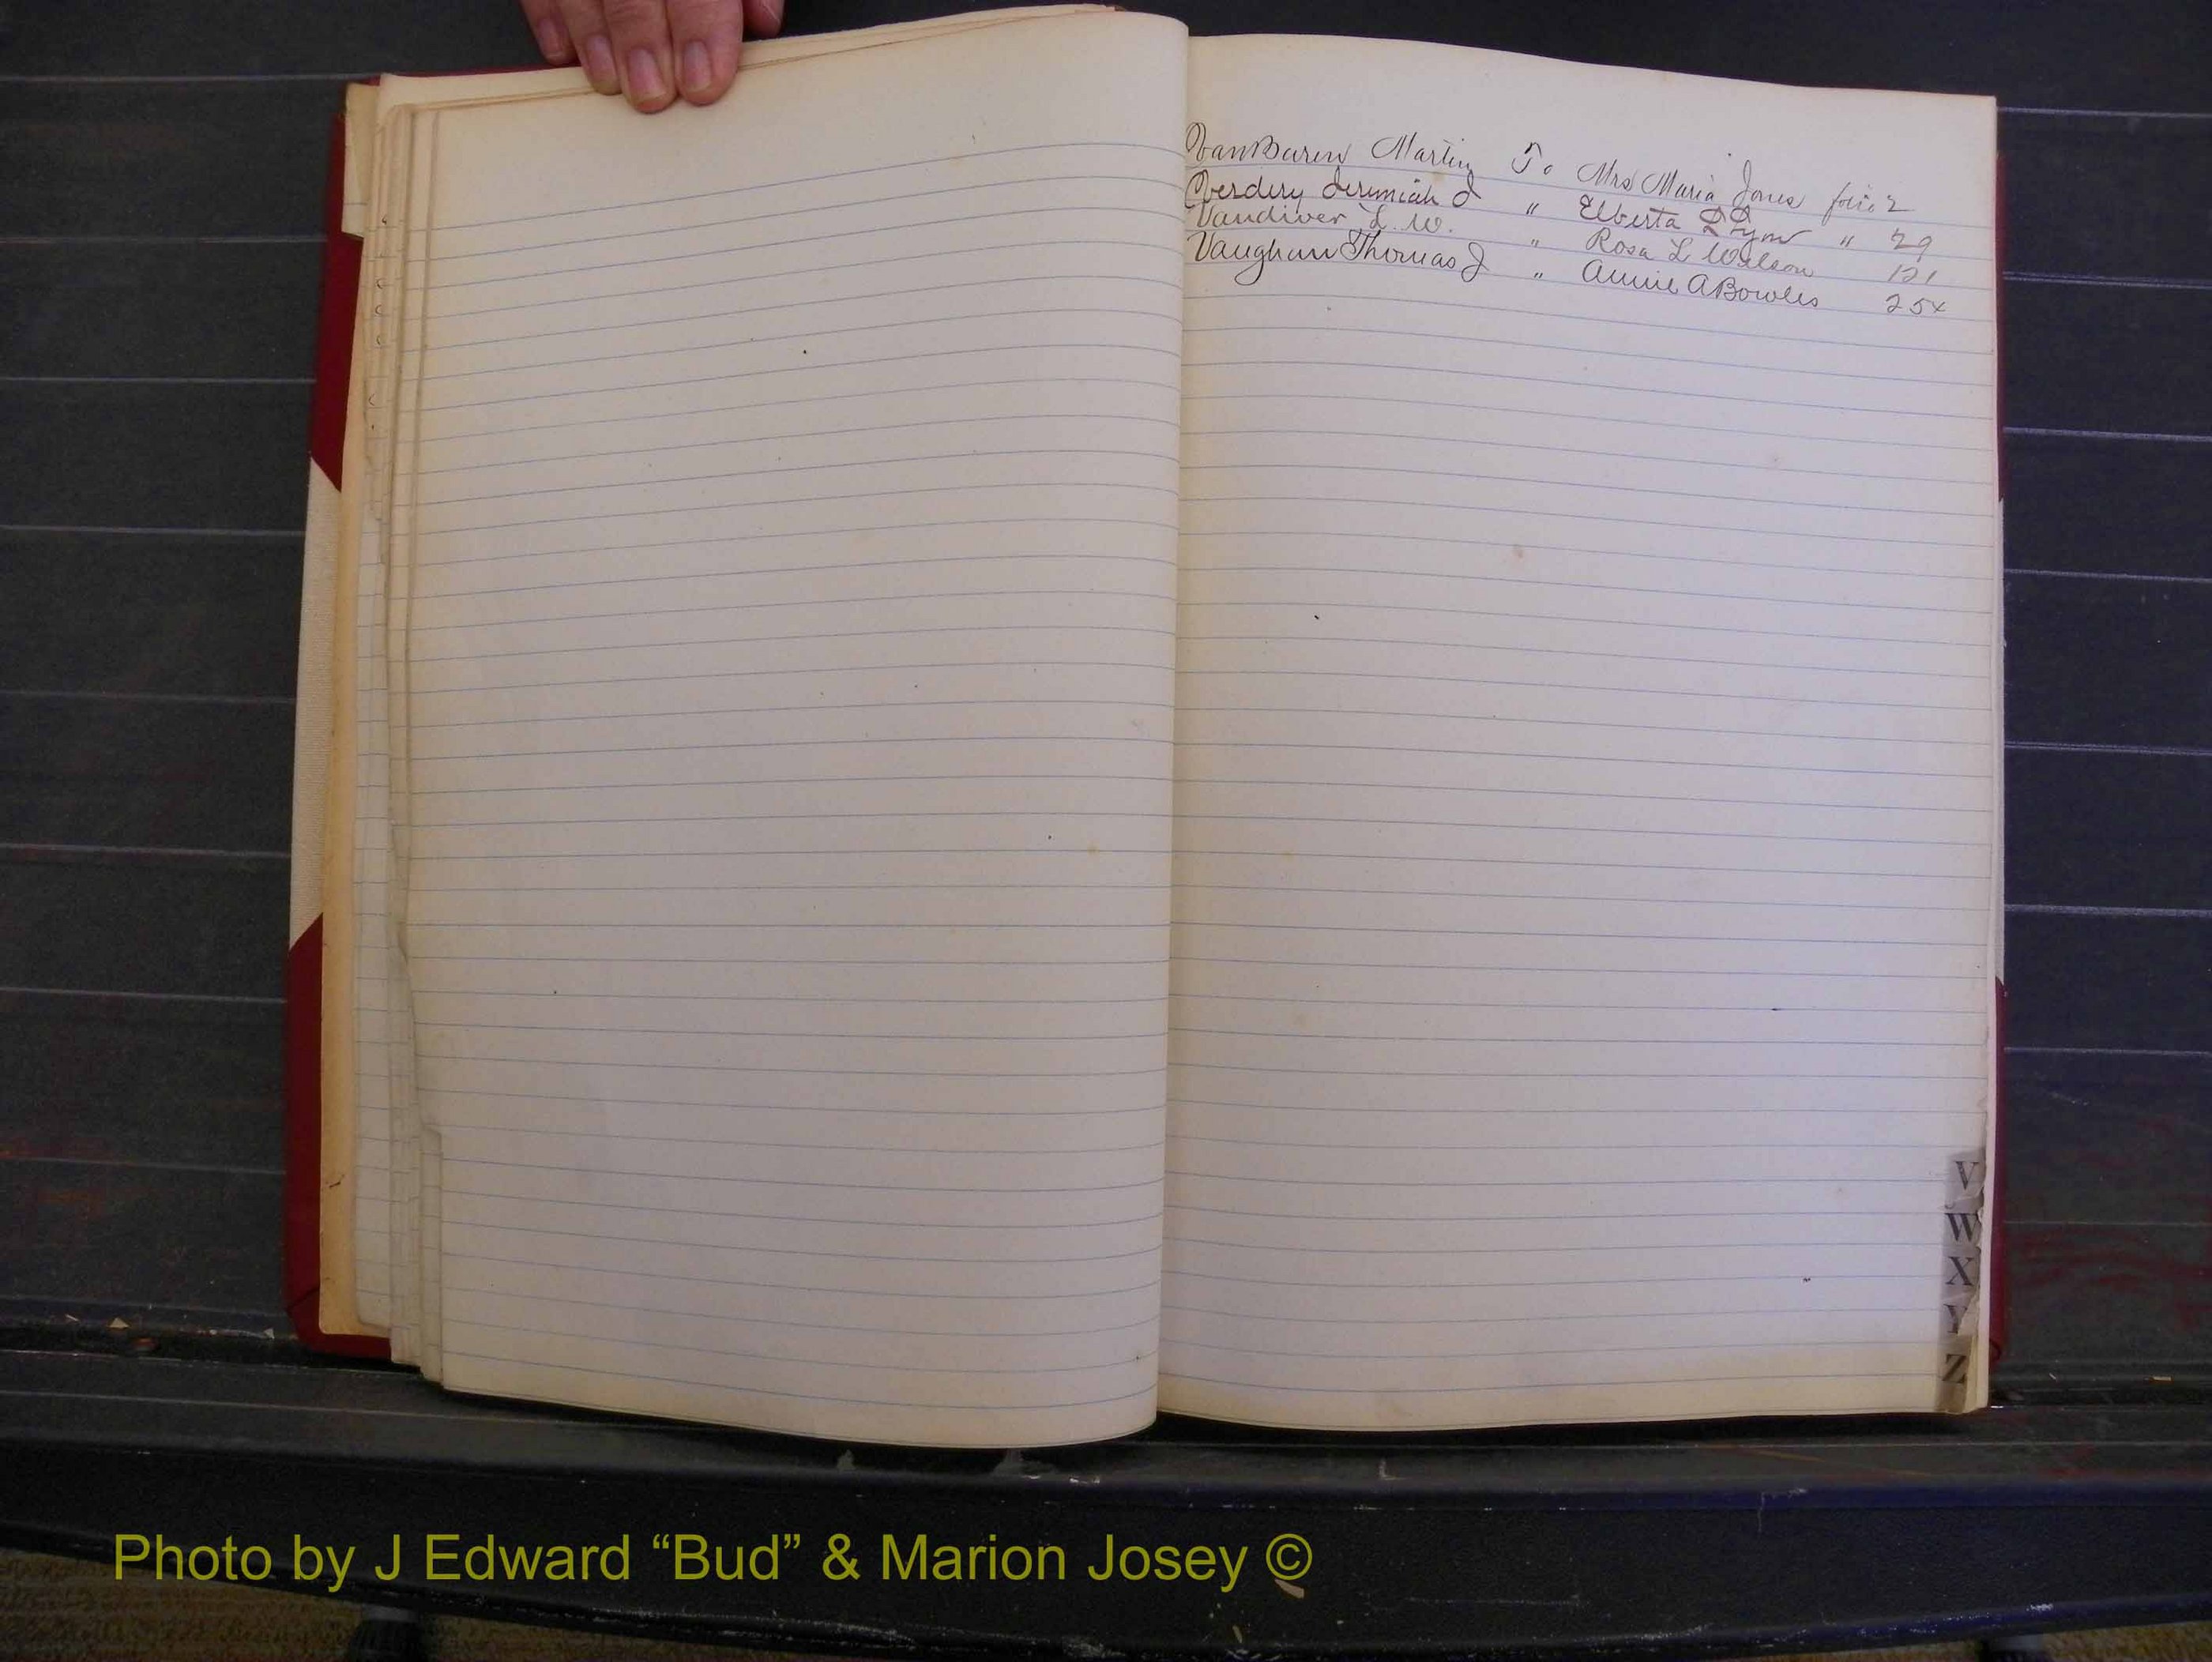 VanBuren Martin To Mrs Maria Jones folio 2
Verdery Jeremiah J " Elberta " 29
Vandiver L. W. " Rosa L Wilson 121
Vaughan Thomas J " Annie A Bowles 254
V
W
X
Y
Z
Photo by J Edward “Bud” & Marion Josey ©